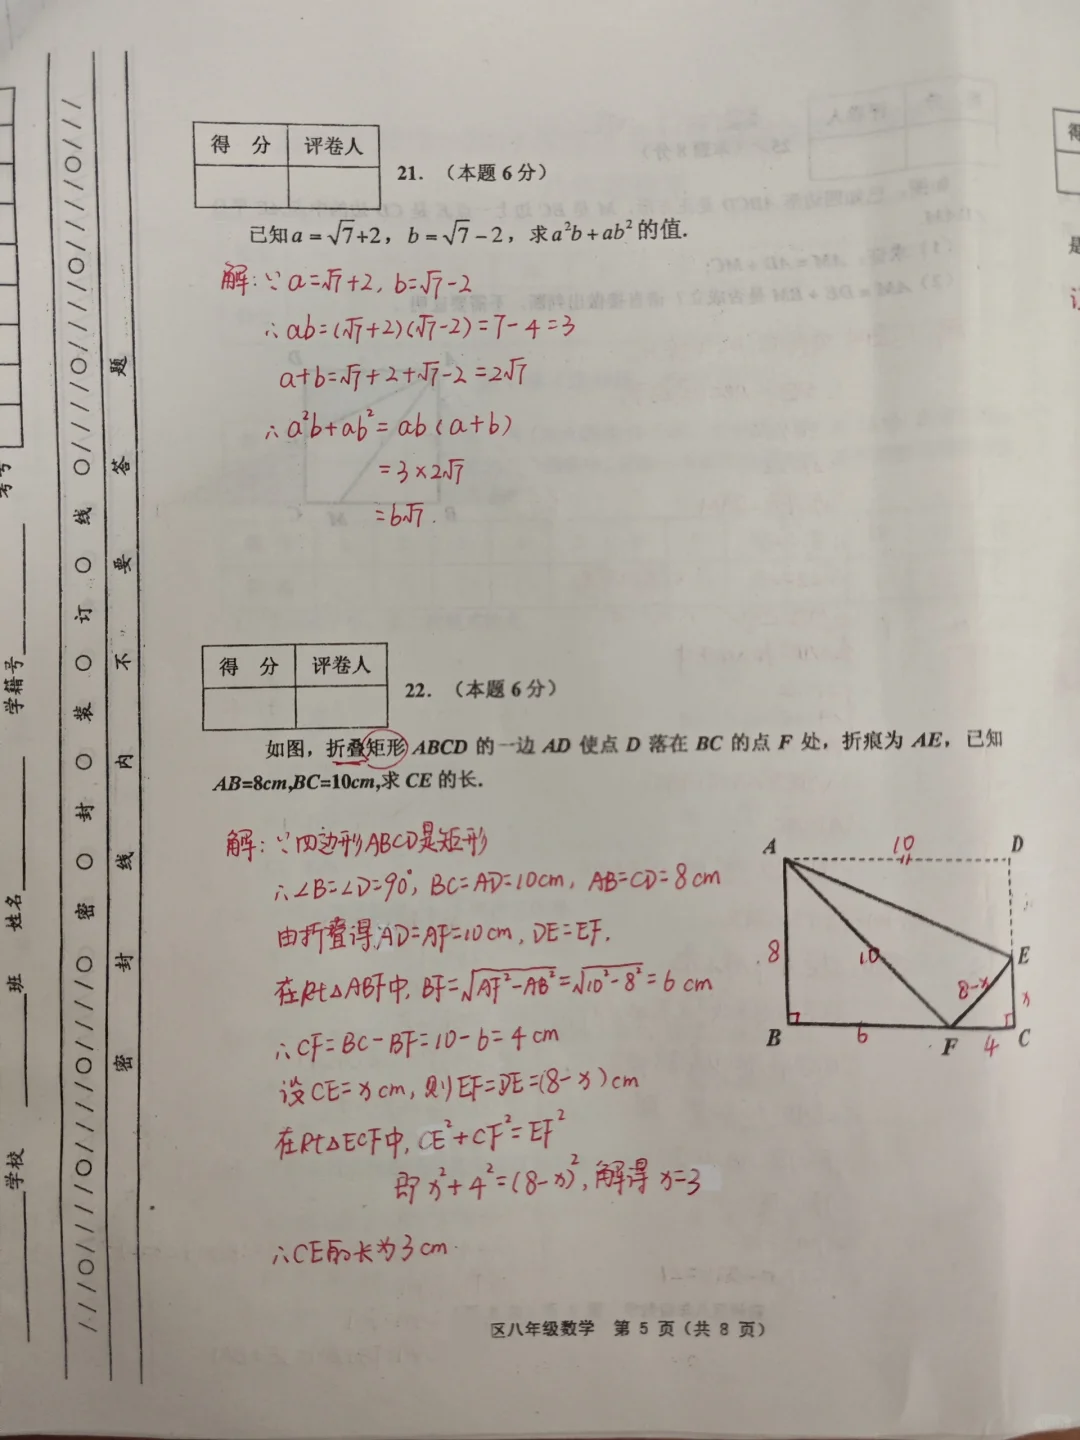 得 分 评卷人
21. （本题6分）
已知a=√7+2，b=√7-2，求a²b+ab²的值.
解：∵a=√7+2, b=√7-2
∴ab=(√7+2)(√7-2)=7-4=3
a+b=√7+2+√7-2=2√7
∴a²b+ab²=ab(a+b)
=3×2√7
=6√7.
得 分 评卷人
22. （本题6分）
如图，折叠矩形ABCD的一边AD使点D落在BC的点F处，折痕为AE，已知
AB=8cm,BC=10cm,求CE的长.
解：∵四边形ABCD是矩形
∴∠B=∠D=90°, BC=AD=10cm, AB=CD=8cm
由折叠得AD=AF=10cm, DE=EF.
在Rt△ABF中, BF=√AF²-AB²=√10²-8²=6cm
∴CF=BC-BF=10-6=4cm
设CE=xcm, 则EF=DE=(8-x)cm
在Rt△ECF中, CE²+CF²=EF²
即x²+4²=(8-x)², 解得x=3
∴CE的长为3cm.
A 10 D
8 10 E
8-x x
B 6 F 4 C
区八年级数学 第5页(共8页)
题
答
要
不
内
线
封
密
线
订
装
封
密
考号
学籍号
姓名
班
学校